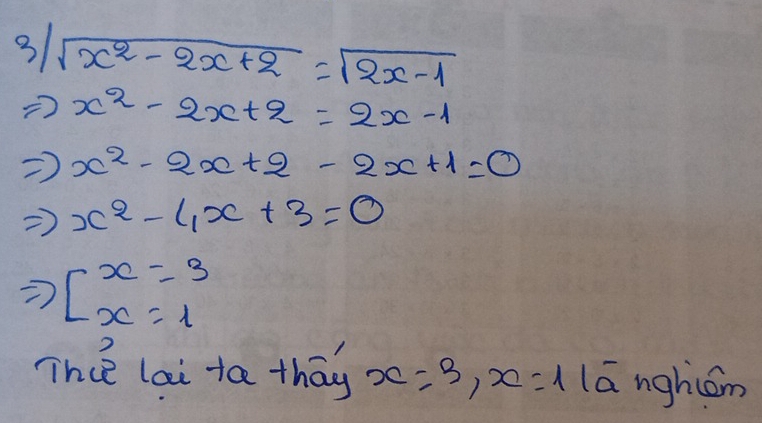 3/ √(x² - 2x + 2) = √(2x - 1)
=> x² - 2x + 2 = 2x - 1
=> x² - 2x + 2 - 2x + 1 = 0
=> x² - 4x + 3 = 0
=> [ x = 3
x = 1
Thử lại ta thấy x = 3, x = 1 là nghiệm